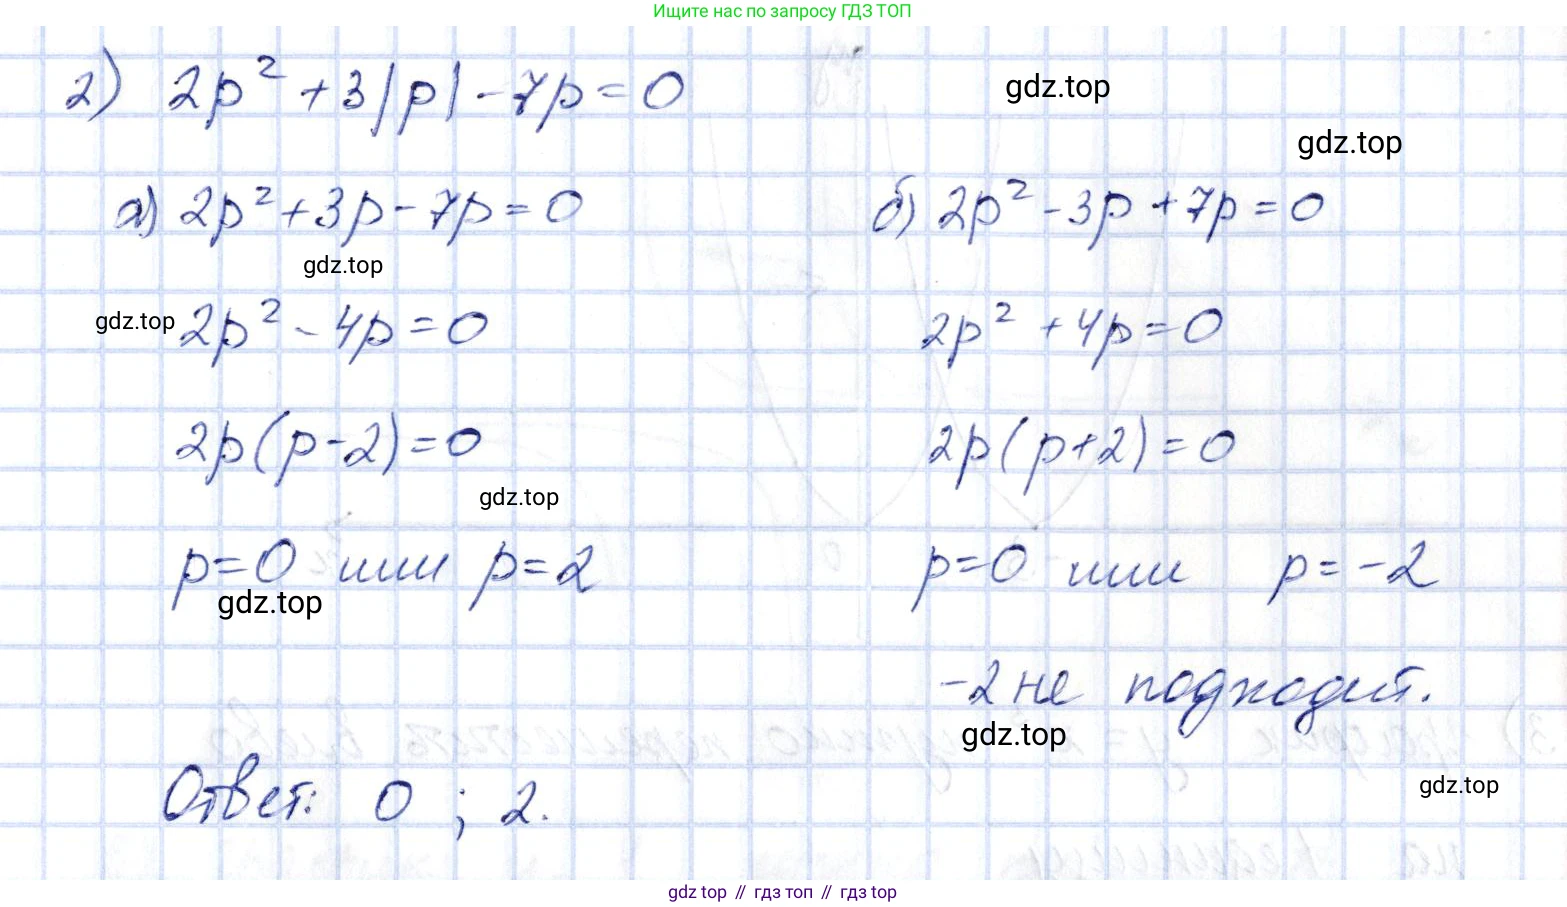 Ищите нас по запросу ГДЗ ТОП
2) 2p² + 3|p| - 7p = 0
gdz.top
gdz.top
а) 2p² + 3p - 7p = 0
б) 2p² - 3p + 7p = 0
gdz.top
gdz.top
2p² - 4p = 0
2p² + 4p = 0
2p(p-2) = 0
2p(p+2) = 0
gdz.top
p = 0 или p = 2
p = 0 или p = -2
gdz.top
-2 не подходит.
gdz.top
gdz.top
Ответ: 0 ; 2.
gdz top // гдз топ // гдз top